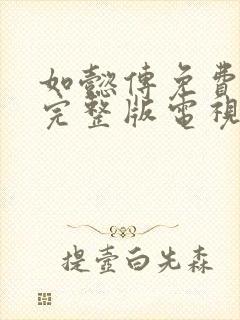 如懿傳免費
完整版電視
提壺白先森